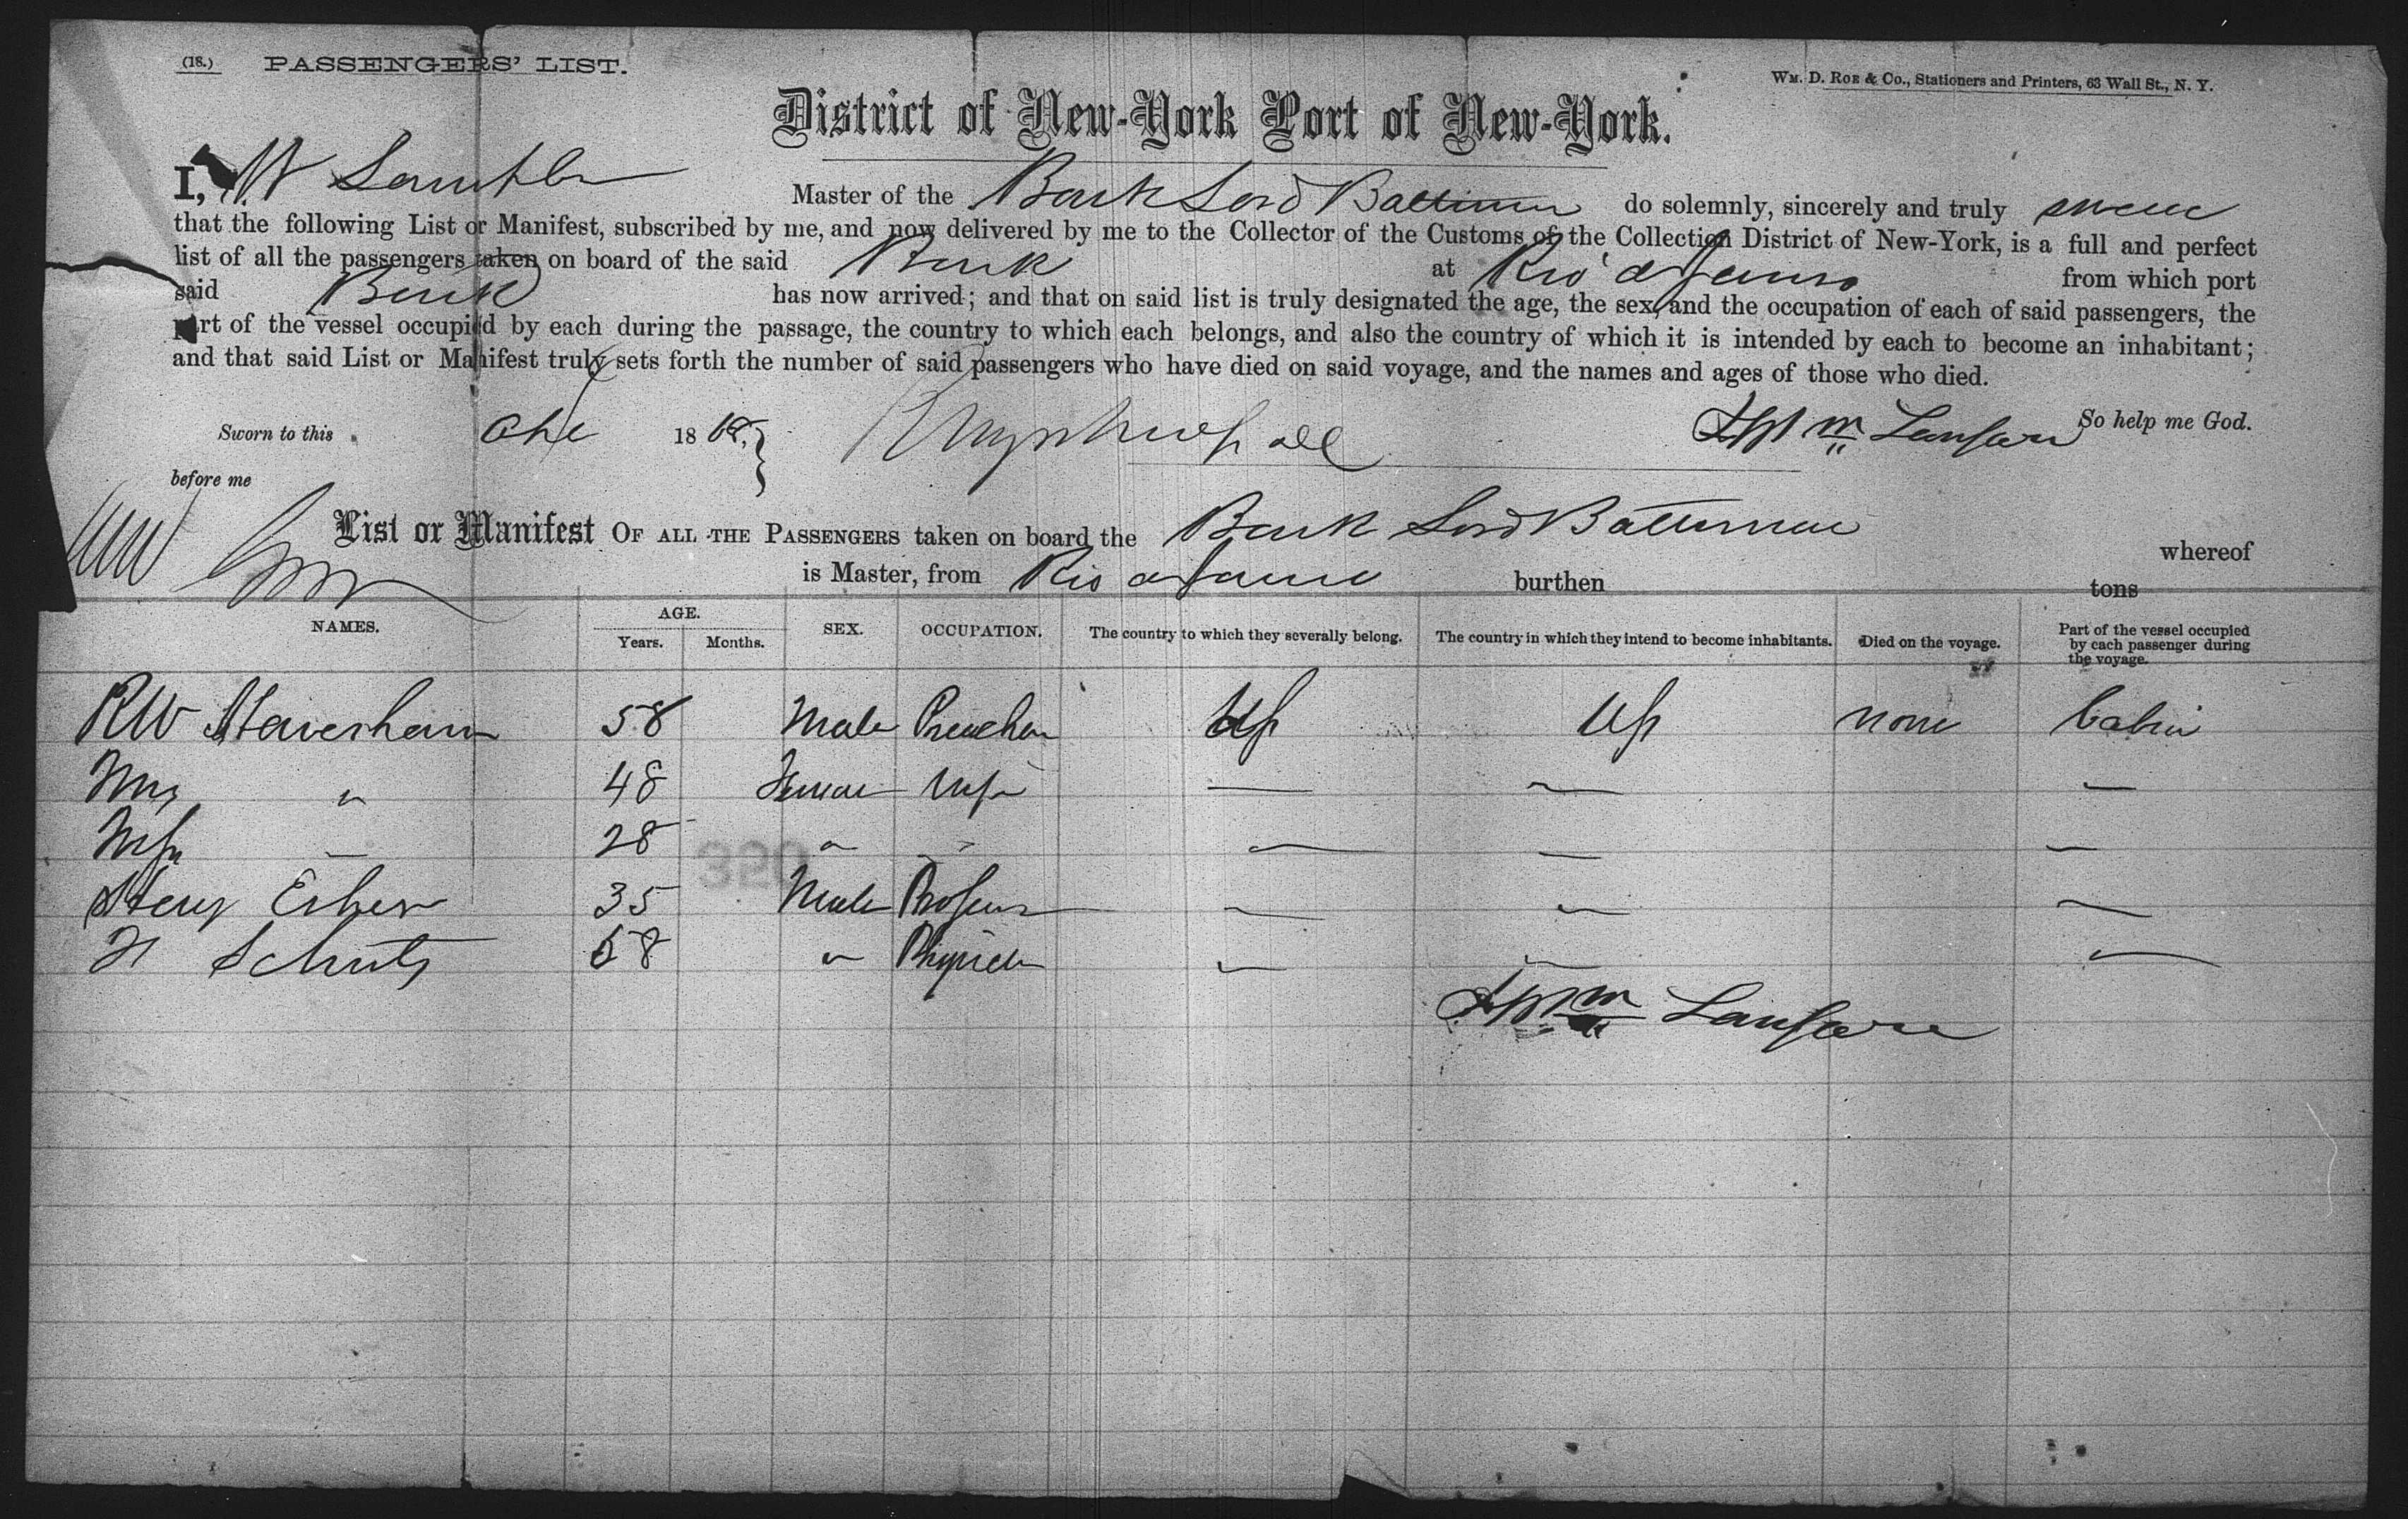 (18.) PASSENGERS' LIST.
WM. D. ROE & Co., Stationers and Printers, 63 Wall St., N. Y.
District of New-York Port of New-York.
I, W Master of the Bark Lord Baltimore do solemnly, sincerely and truly swear
that the following List or Manifest, subscribed by me, and now delivered by me to the Collector of the Customs of the Collection District of New-York, is a full and perfect
list of all the passengers taken on board of the said Bark at Rio d Janiro from which port
said Bark has now arrived; and that on said list is truly designated the age, the sex, and the occupation of each of said passengers, the
part of the vessel occupied by each during the passage, the country to which each belongs, and also the country of which it is intended by each to become an inhabitant;
and that said List or Manifest truly sets forth the number of said passengers who have died on said voyage, and the names and ages of those who died.
So help me God.
Sworn to this 18
before me
List or Manifest OF ALL THE PASSENGERS taken on board the Bark Lord Baltimore whereof
is Master, from Rio d burthen tons
NAMES. AGE. SEX. OCCUPATION. The country to which they severally belong. The country in which they intend to become inhabitants. Died on the voyage. Part of the vessel occupied by each passenger during the voyage.
Years. Months.
RW 58 Male Preacher US US none Cabin
Mrs " 48 Female Wife — — —
28 " " — — —
Henry 35 Male Professor — — —
H Schutz 58 " — — —